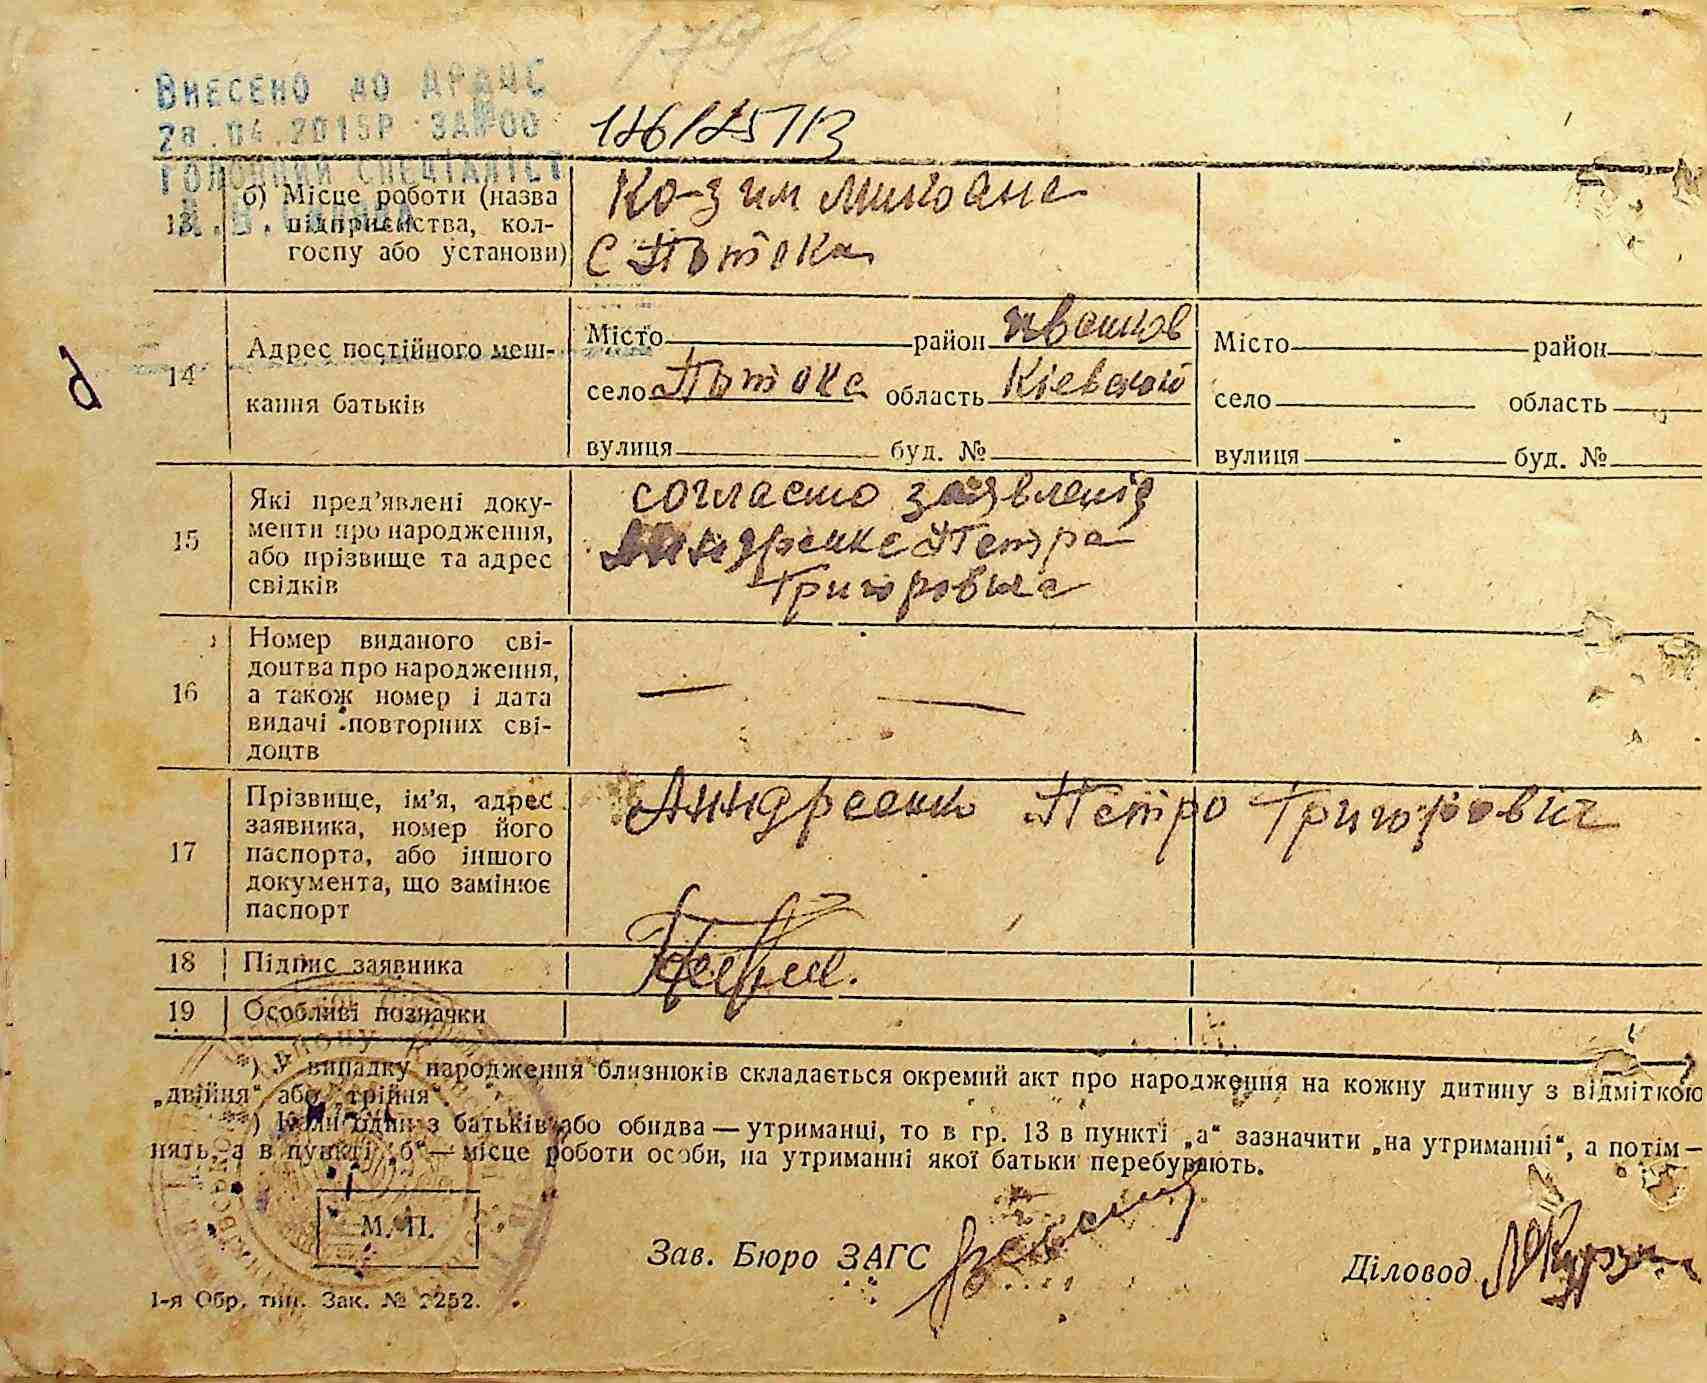 17976
Внесено до ДРАЦС
28.04.2015р за №00
126/25713
Головний спеціаліст
13 б) Місце роботи (назва підприємства, кол-
госпу або установи)
с Потока
14 Адрес постійного меш-
кання батьків
Місто район
село Потока область Кіевской
вулиця буд. №
Місто район
село область
вулиця буд. №
15 Які пред’явлені доку-
менти про народження,
або прізвище та адрес
свідків
согласно заявленія
Петра
Григоровича
16 Номер виданого сві-
доцтва про народження,
а також номер і дата
видачі повторних сві-
доцтв
— —
17 Прізвище, ім’я, адрес
заявника, номер його
паспорта, або іншого
документа, що замінює
паспорт
Андреенко Петро Григорович
18 Підпис заявника
19 Особливі позначки
*) У випадку народження близнюків складається окремий акт про народження на кожну дитину з відміткою
„двійня“ або „трійня“.
**) Коли один з батьків або обидва — утриманці, то в гр. 13 в пункті „а“ зазначити „на утриманні“, а потім —
нять, а в пункті „б“ — місце роботи особи, на утриманні якої батьки перебувають.
М. П.
Зав. Бюро ЗАГС
Діловод
1-я Обр. тип. Зак. № 2252.